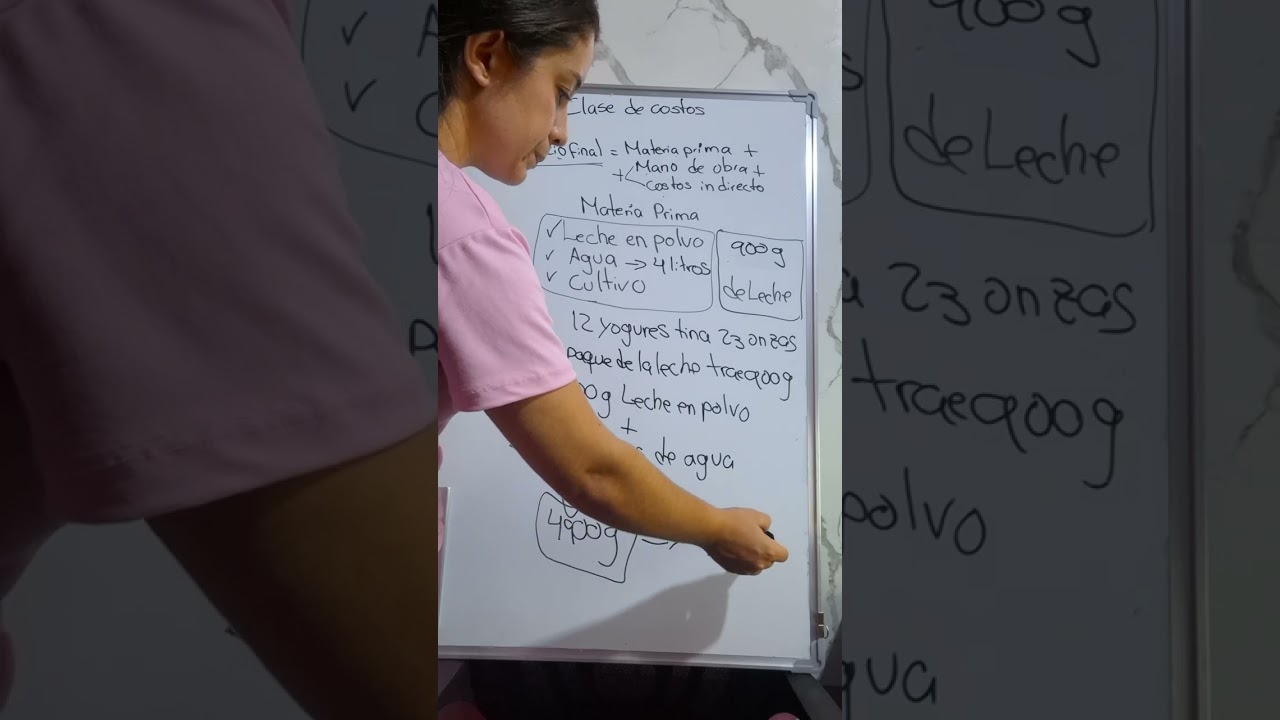 Clase de costos
Final = Materia prima +
+ Mano de obra +
costos indirecto
Materia Prima
✓ Leche en polvo
✓ Agua → 4 litros
✓ Cultivo
900g
de Leche
12 yogures tina 23 onzas
paque de la leche trae 900g
Leche en polvo
+
de agua
4900g →